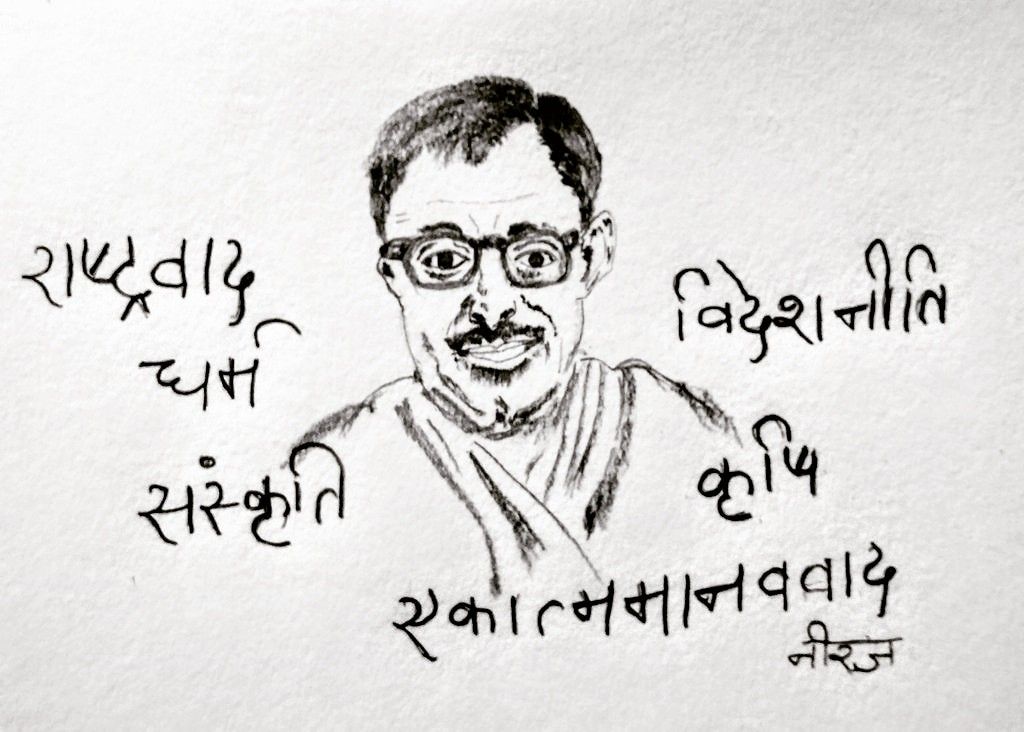 राष्ट्रवाद
धर्म
संस्कृति
विदेशनीति
कृषि
एकात्ममानववाद
नीरज